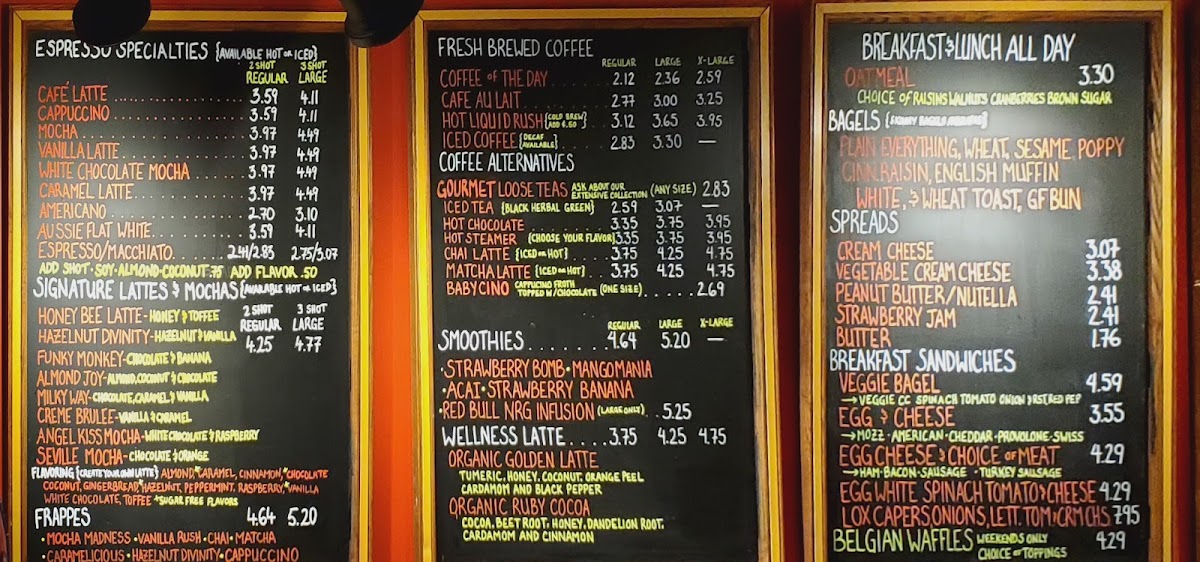 ESPRESSO SPECIALTIES {AVAILABLE HOT OR ICED}
2 SHOT 3 SHOT
REGULAR LARGE
CAFÉ LATTE 3.59 4.11
CAPPUCCINO 3.59 4.11
MOCHA 3.97 4.49
VANILLA LATTE 3.97 4.49
WHITE CHOCOLATE MOCHA 3.97 4.49
CARAMEL LATTE 3.97 4.49
AMERICANO 2.70 3.10
AUSSIE FLAT WHITE 3.59 4.11
ESPRESSO/MACCHIATO 2.41/2.83 2.75/3.07
ADD SHOT·SOY·ALMOND·COCONUT .75 ADD FLAVOR .50
SIGNATURE LATTES & MOCHAS {AVAILABLE HOT OR ICED}
2 SHOT 3 SHOT
HONEY BEE LATTE-HONEY & TOFFEE REGULAR LARGE
HAZELNUT DIVINITY-HAZELNUT & VANILLA 4.25 4.77
FUNKY MONKEY-CHOCOLATE & BANANA
ALMOND JOY-ALMOND, COCONUT & CHOCOLATE
MILKY WAY-CHOCOLATE, CARAMEL & VANILLA
CREME BRULEE-VANILLA & CARAMEL
ANGEL KISS MOCHA-WHITE CHOCOLATE & RASPBERRY
SEVILLE MOCHA-CHOCOLATE & ORANGE
FLAVORING {CREATE YOUR OWN LATTE} ALMOND,*CARAMEL, CINNAMON,*CHOCOLATE
COCONUT, GINGERBREAD,*HAZELNUT, PEPPERMINT, RASPBERRY,*VANILLA
WHITE CHOCOLATE, TOFFEE *SUGAR FREE FLAVORS
FRAPPES 4.64 5.20
·MOCHA MADNESS·VANILLA RUSH·CHAI·MATCHA
·CARAMELICIOUS·HAZELNUT DIVINITY·CAPPUCCINO
FRESH BREWED COFFEE
REGULAR LARGE X-LARGE
COFFEE OF THE DAY 2.12 2.36 2.59
CAFE AU LAIT 2.77 3.00 3.25
HOT LIQUID RUSH {COLD BREW ADD $.50} 3.12 3.65 3.95
ICED COFFEE {DECAF AVAILABLE} 2.83 3.30 —
COFFEE ALTERNATIVES
GOURMET LOOSE TEAS ASK ABOUT OUR EXTENSIVE COLLECTION (ANY SIZE) 2.83
ICED TEA {BLACK HERBAL GREEN} 2.59 3.07 —
HOT CHOCOLATE 3.35 3.75 3.95
HOT STEAMER {CHOOSE YOUR FLAVOR} 3.35 3.75 3.95
CHAI LATTE {ICED OR HOT} 3.75 4.25 4.75
MATCHA LATTE {ICED OR HOT} 3.75 4.25 4.75
BABYCINO CAPPUCINO FROTH TOPPED W/CHOCOLATE (ONE SIZE) 2.69
REGULAR LARGE X-LARGE
SMOOTHIES 4.64 5.20 —
·STRAWBERRY BOMB·MANGOMANIA
·ACAI·STRAWBERRY BANANA
·RED BULL NRG INFUSION (LARGE ONLY) 5.25
WELLNESS LATTE 3.75 4.25 4.75
ORGANIC GOLDEN LATTE
TUMERIC, HONEY, COCONUT, ORANGE PEEL
CARDAMOM AND BLACK PEPPER
ORGANIC RUBY COCOA
COCOA, BEET ROOT, HONEY, DANDELION ROOT,
CARDAMOM AND CINNAMON
BREAKFAST & LUNCH ALL DAY
OATMEAL 3.30
CHOICE OF RAISINS WALNUTS CRANBERRIES BROWN SUGAR
BAGELS
PLAIN EVERYTHING, WHEAT, SESAME, POPPY
CINN.RAISIN, ENGLISH MUFFIN
WHITE, & WHEAT TOAST, GF BUN
SPREADS
CREAM CHEESE 3.07
VEGETABLE CREAM CHEESE 3.38
PEANUT BUTTER/NUTELLA 2.41
STRAWBERRY JAM 2.41
BUTTER 1.76
BREAKFAST SANDWICHES
VEGGIE BAGEL 4.59
→VEGGIE CC SPINACH TOMATO ONION & RST RED PEP
EGG & CHEESE 3.55
→MOZZ·AMERICAN·CHEDDAR·PROVOLONE·SWISS
EGG CHEESE & CHOICE OF MEAT 4.29
→HAM·BACON·SAUSAGE·TURKEY SAUSAGE
EGG WHITE SPINACH TOMATO & CHEESE 4.29
LOX CAPERS ONIONS, LETT. TOM & CRM CHS 7.95
BELGIAN WAFFLES WEEKENDS ONLY CHOICE OF TOPPINGS 4.29